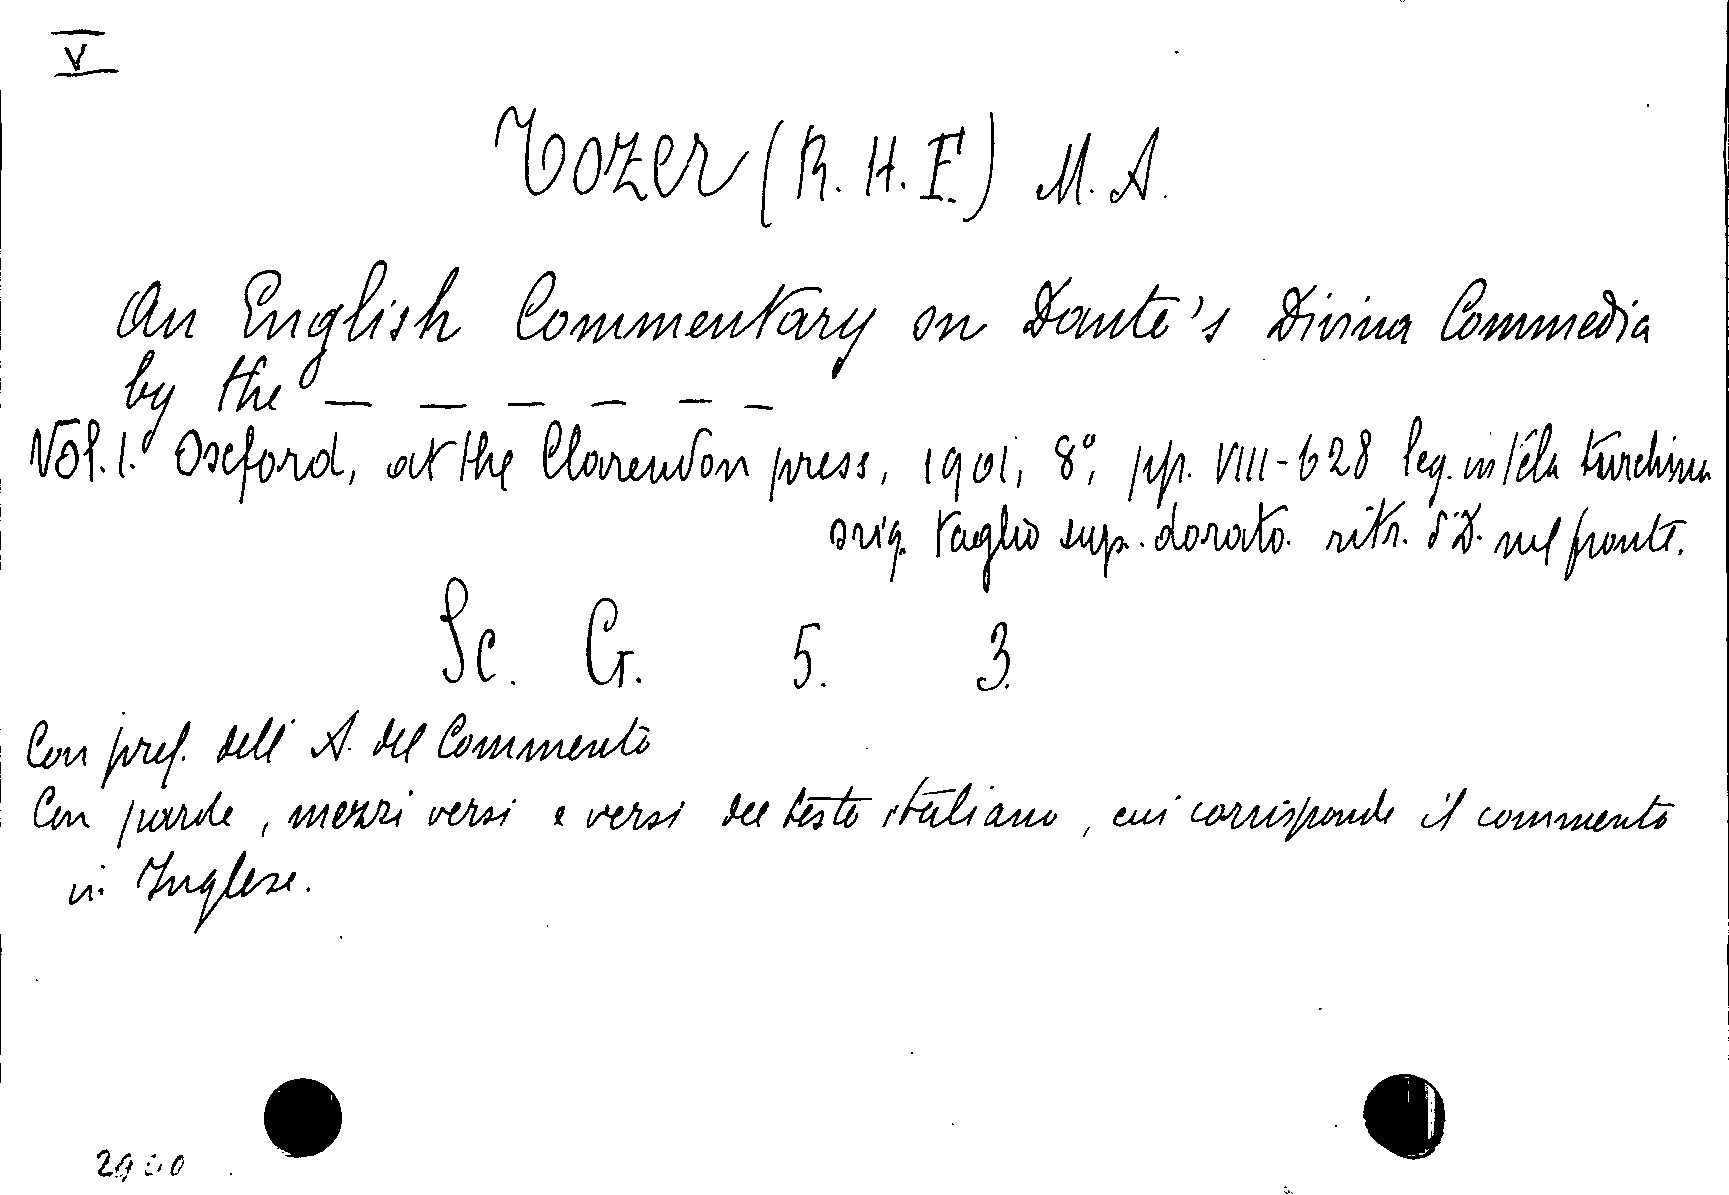 V
Tozer (R. H. F.) M. A.
An English Commentary on Dante's Divina Commedia
by the — — — — — —
Vol. 1.° Oxford, at the Clarendon press, 1901, 8°, pp. VIII-628 leg. in tela turchina
orig. taglio sup. dorato. ritr. d'D. nel front.
Sc. G. 5. 3.
Con pref. dell' A. del Commento
Con parole, mezzi versi e versi del testo italiano, cui corrisponde il commento
in Inglese.